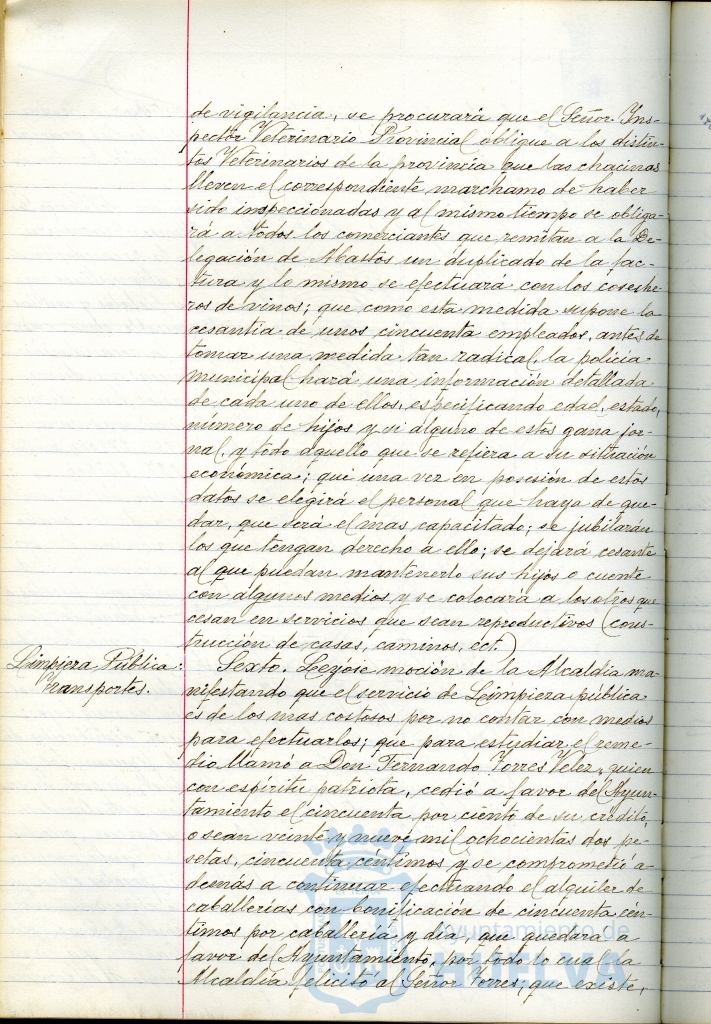 de vigilancia, se procurará que el Señor Ins-
pector Veterinario Provincial obligue a los distin-
tos Veterinarios de la provincia que las chacinas
lleven el correspondiente marchamo de haber
sido inspeccionadas y al mismo tiempo se obliga-
rá a todos los comerciantes que remitan a la De-
legación de Abastos un duplicado de la fac-
tura y lo mismo se efectuará con los coseche-
ros de vinos; que como esta medida supone la
cesantia de unos cincuenta empleados, antes de
tomar una medida tan radical, la policia
municipal hará una información detallada
de cada uno de ellos, especificando edad, estado,
número de hijos y si alguno de estos gana jor-
nal, y todo aquello que se refiera a su situación
económica; que una vez en posesión de estos
datos se elegirá el personal que haya de que-
dar, que será el mas capacitado; se jubilarán
los que tengan derecho a ello; se dejará cesante
al que puedan mantenerlo sus hijos o cuente
con algunos medios y se colocará a los otros que
cesan en servicios que sean reproductivos (cons-
trucción de casas, caminos, ect.)
Limpieza Pública:
Transportes.
Sexto. Leyóse moción de la Alcaldía ma-
nifestando que el servicio de Limpieza pública
es de los mas costosos por no contar con medios
para efectuarlos; que para estudiar el reme-
dio llamó a Don Fernando Torres Velez, quien
con espíritu patriota, cedió a favor del Ayun-
tamiento el cincuenta por ciento de su crédito,
o sean veinte y nueve mil ochocientas dos pe-
setas, cincuenta céntimos y se comprometió a-
demás a continuar efectuando el alquiler de
caballerías con bonificación de cincuenta cén-
timos por caballería y día, que quedará a
favor del Ayuntamiento, por todo lo cual la
Alcaldía felicitó al Señor Torres; que existe,
Ayuntamiento de
HUELVA